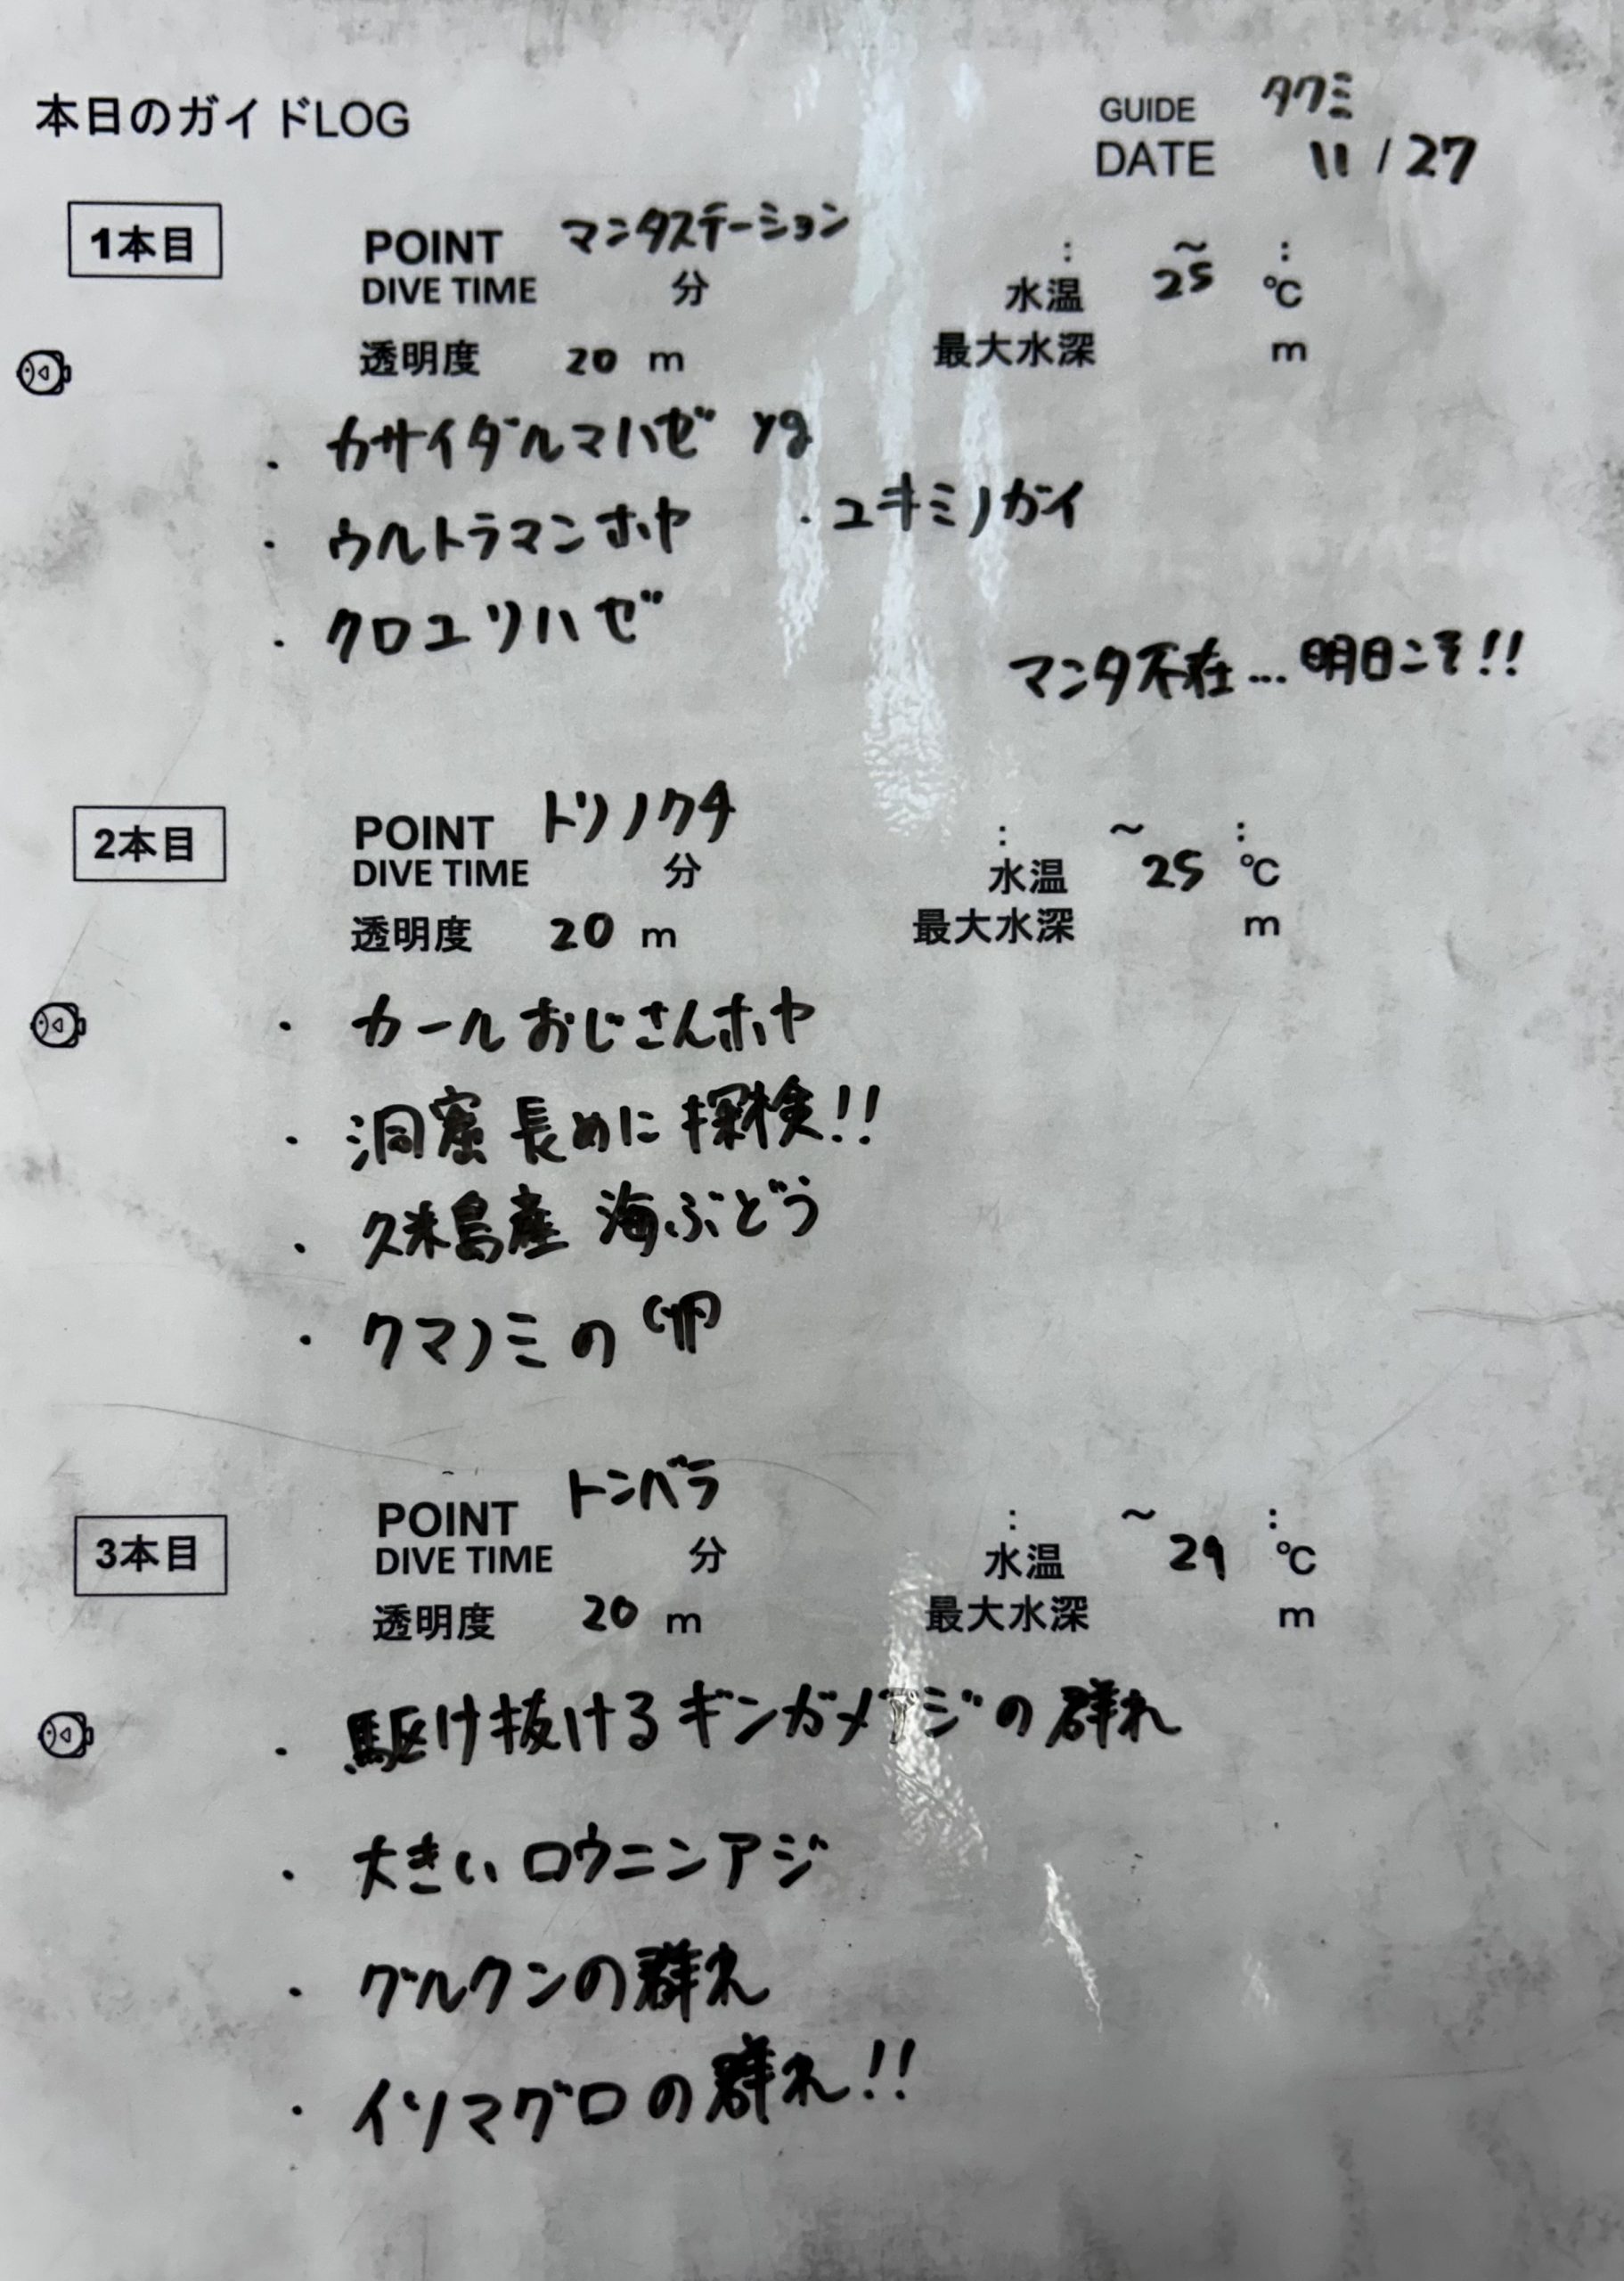 本日のガイドLOG
GUIDE タクミ
DATE 11 / 27
1本目
POINT マンタステーション : ~ :
DIVE TIME 分 水温 25 ℃
透明度 20 m 最大水深 m
・カサイダルマハゼ yg
・ウルトラマンホヤ ・ユキミノガイ
・クロユリハゼ
マンタ不在…明日こそ!!
2本目
POINT トリノクチ : ~ :
DIVE TIME 分 水温 25 ℃
透明度 20 m 最大水深 m
・カールおじさんホヤ
・洞窟 長めに 探検!!
・久米島産 海ぶどう
・クマノミの卵
3本目
POINT トンバラ : ~ :
DIVE TIME 分 水温 29 ℃
透明度 20 m 最大水深 m
・駆け抜けるギンガメアジの群れ
・大きいロウニンアジ
・グルクンの群れ
・イソマグロの群れ!!